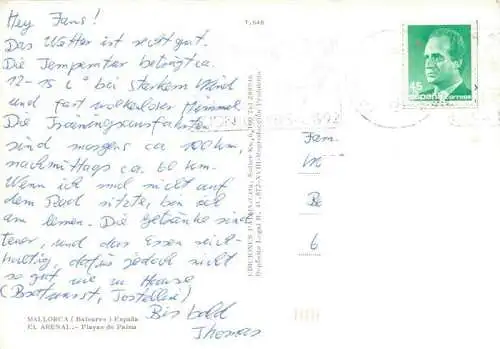 Hey Fans!
Das Wetter ist recht gut.
Die Temperatur beträgt ca.
12-15 C° bei starkem Wind
und fast wolkenloser Himmel.
Die Trainingsausfahrten
sind morgens ca 100 km,
nachmittags ca. 60 km.
Wenn ich mal nicht auf
dem Rad sitze, bin ich
am lernen. Die Getränke sind
teuer, und das Essen reich-
haltig, dafür jedoch nicht
so gut wie zu Hause
(Bratwurst, Tostellini)
Bis bald
Thomas
MALLORCA (Baleares) España
EL ARENAL.- Playas de Palma
T. 648
45
ESPAÑA
correos
Fam.
M
Be
6